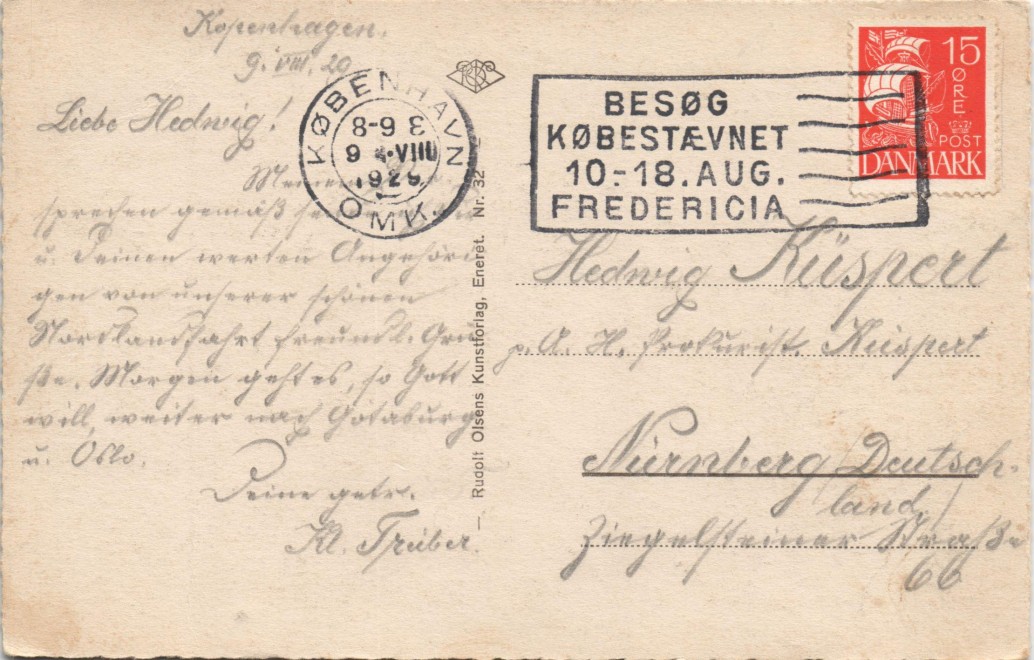 Kopenhagen,
9. VIII. 29
Liebe Hedwig!
Meinem
sprechen gemäß
u. Deinen werten Angehöri
gen von unserer schönen
Nordlandfahrt freundl. Grü
ße. Morgen geht es, so Gott
will, weiter nach Götaburg
u. Oslo.
Deine getr.
Kl. Trüber.
KØBENHAVN
8-9 E
9 .VIII
1929
OMK.
Rudolf Olsens Kunstforlag, Eneret. Nr. 32
BESØG
KØBESTÆVNET
10.-18. AUG.
FREDERICIA
15
ØRE
POST
DANMARK
Hedwig Küspert
p. A. H. Prokurist. Küspert
Nürnberg/Deutsch-
land/
Ziegelsteiner Straße
66